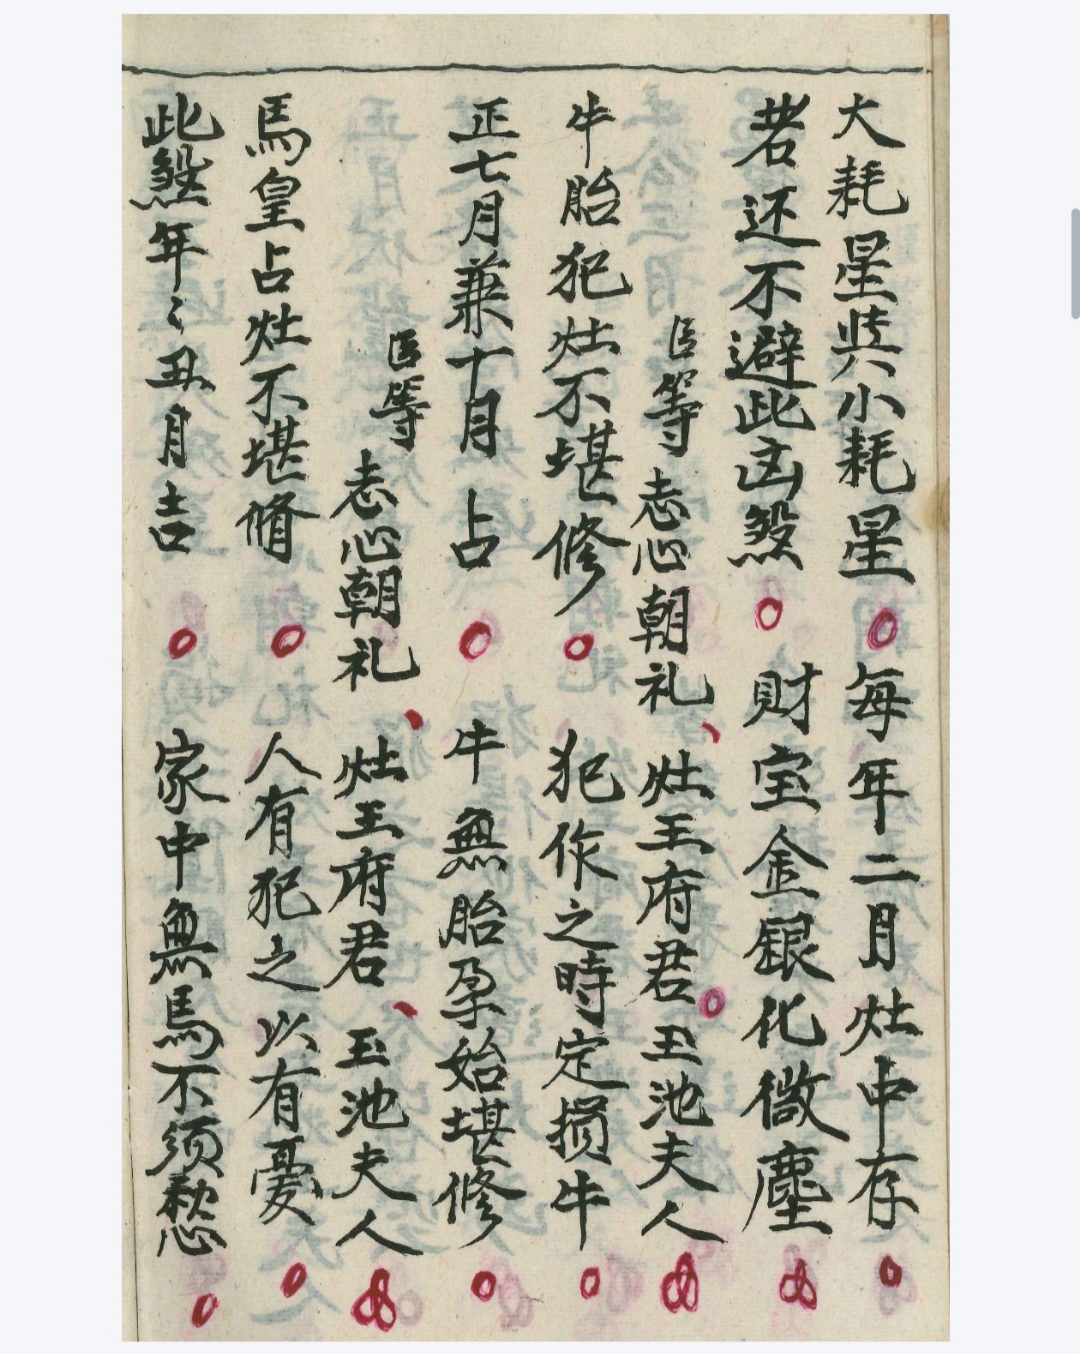 大耗星与小耗星○每年二月灶中存○
若还不避此凶煞○财宝金銀化微塵
臣等志心朝礼、灶王府君○玉池夫人
牛胎犯灶不堪修○犯作之時定損牛○
正七月兼十月占○牛無胎孕始堪修○
臣等志心朝礼、灶王府君、玉池夫人
馬皇占灶不堪脩○人有犯之以有憂○
此煞年〻丑月吉○家中無馬不须愁○